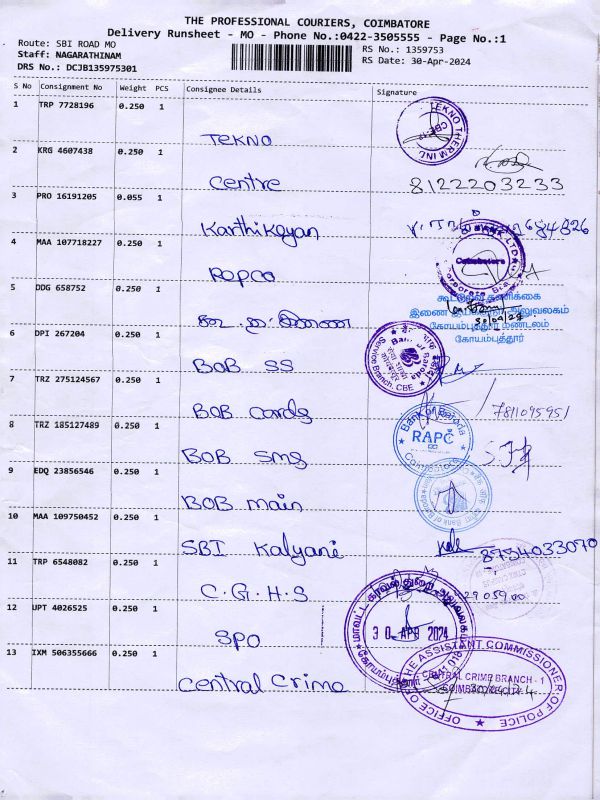 THE PROFESSIONAL COURIERS, COIMBATORE
Delivery Runsheet - MO - Phone No.:0422-3505555 - Page No.:1
Route: SBI ROAD MO
Staff: NAGARATHINAM
DRS No.: DCJB135975301
RS No.: 1359753
RS Date: 30-Apr-2024
S No Consignment No Weight PCS Consignee Details Signature
1 TRP 7728196 0.250 1
TEKNO
TEKNO THERM IND
CBE-12
2 KRG 4607438 0.250 1
Centre
8122203233
3 PRO 16191205 0.055 1
Karthikeyan
4 MAA 107718227 0.250 1
Repco
BANK LTD
Coimbatore
Corporate
5 DDG 658752 0.250 1
கூட்டுறவு தணிக்கை
இணை இயக்குநர் அலுவலகம்
கோயம்புத்தூர் மண்டலம்
கோயம்புத்தூர்
6 DPI 267204 0.250 1
BOB SS
Bank of Baroda
Service Branch, CBE
7 TRZ 275124567 0.250 1
BOB Cards
7811095951
8 TRZ 185127489 0.250 1
BOB SMS
Bank of Baroda
RAPC
9 EDQ 23856546 0.250 1
BOB main
10 MAA 109750452 0.250 1
SBI Kalyani
8754033070
11 TRP 6548082 0.250 1
C.G.H.S
12 UPT 4026525 0.250 1
SPO
மாவட்ட காவல் துறை அலுவலகம்
30 APR 2024
13 IXM 506355666 0.250 1
Central Crime
OFFICE OF THE ASSISTANT COMMISSIONER OF POLICE
CENTRAL CRIME BRANCH - 1
COIMBATORE CITY